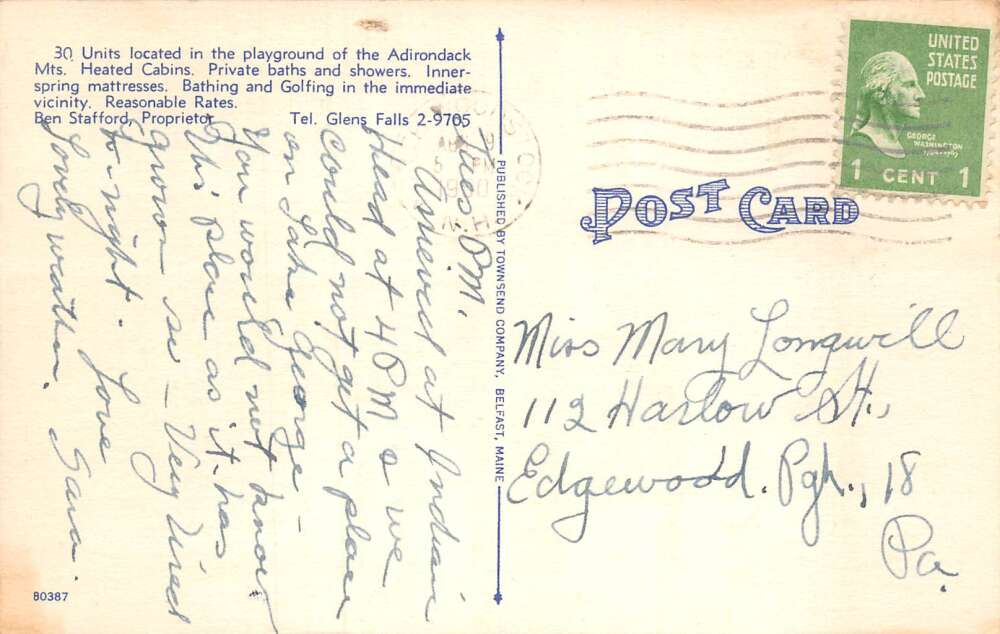 30 Units located in the playground of the Adirondack
Mts. Heated Cabins. Private baths and showers. Inner-
spring mattresses. Bathing and Golfing in the immediate
vicinity. Reasonable Rates.
Ben Stafford, Proprietor Tel. Glens Falls 2-9705
Tues. P.M.
Arrived at Indian
Head at 4 P M & we
could not get a place
on Lake George -
You would not know
this place as it has
grown so - Very tired
to-night. Love
Lovely weather. Sara.
PUBLISHED BY TOWNSEND COMPANY, BELFAST, MAINE
80387
UNITED
STATES
POSTAGE
GEORGE
WASHINGTON
1 CENT 1
POST CARD
Miss Mary Longwill
112 Harlow St.,
Edgewood. Pgh., 18
Pa.